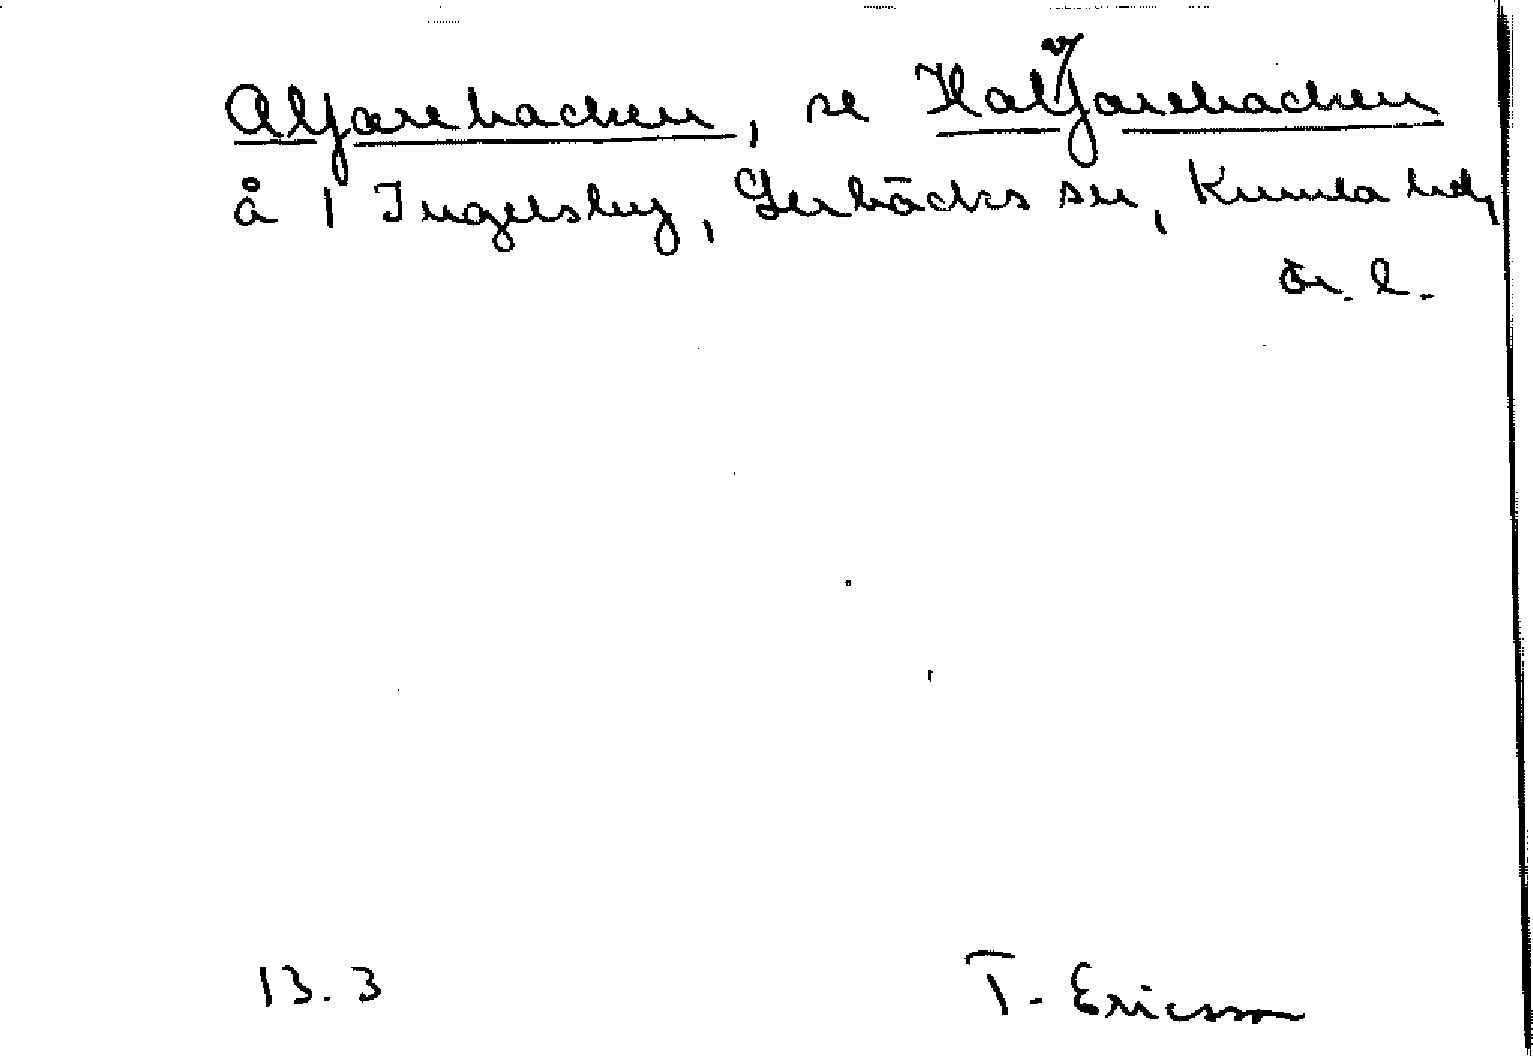 Alfarebacken, se Halvfarebacken
å 1 Ingelsby, Lerbäcks sn, Kumla hd,
Ör. l.
13.3 T. Ericsson